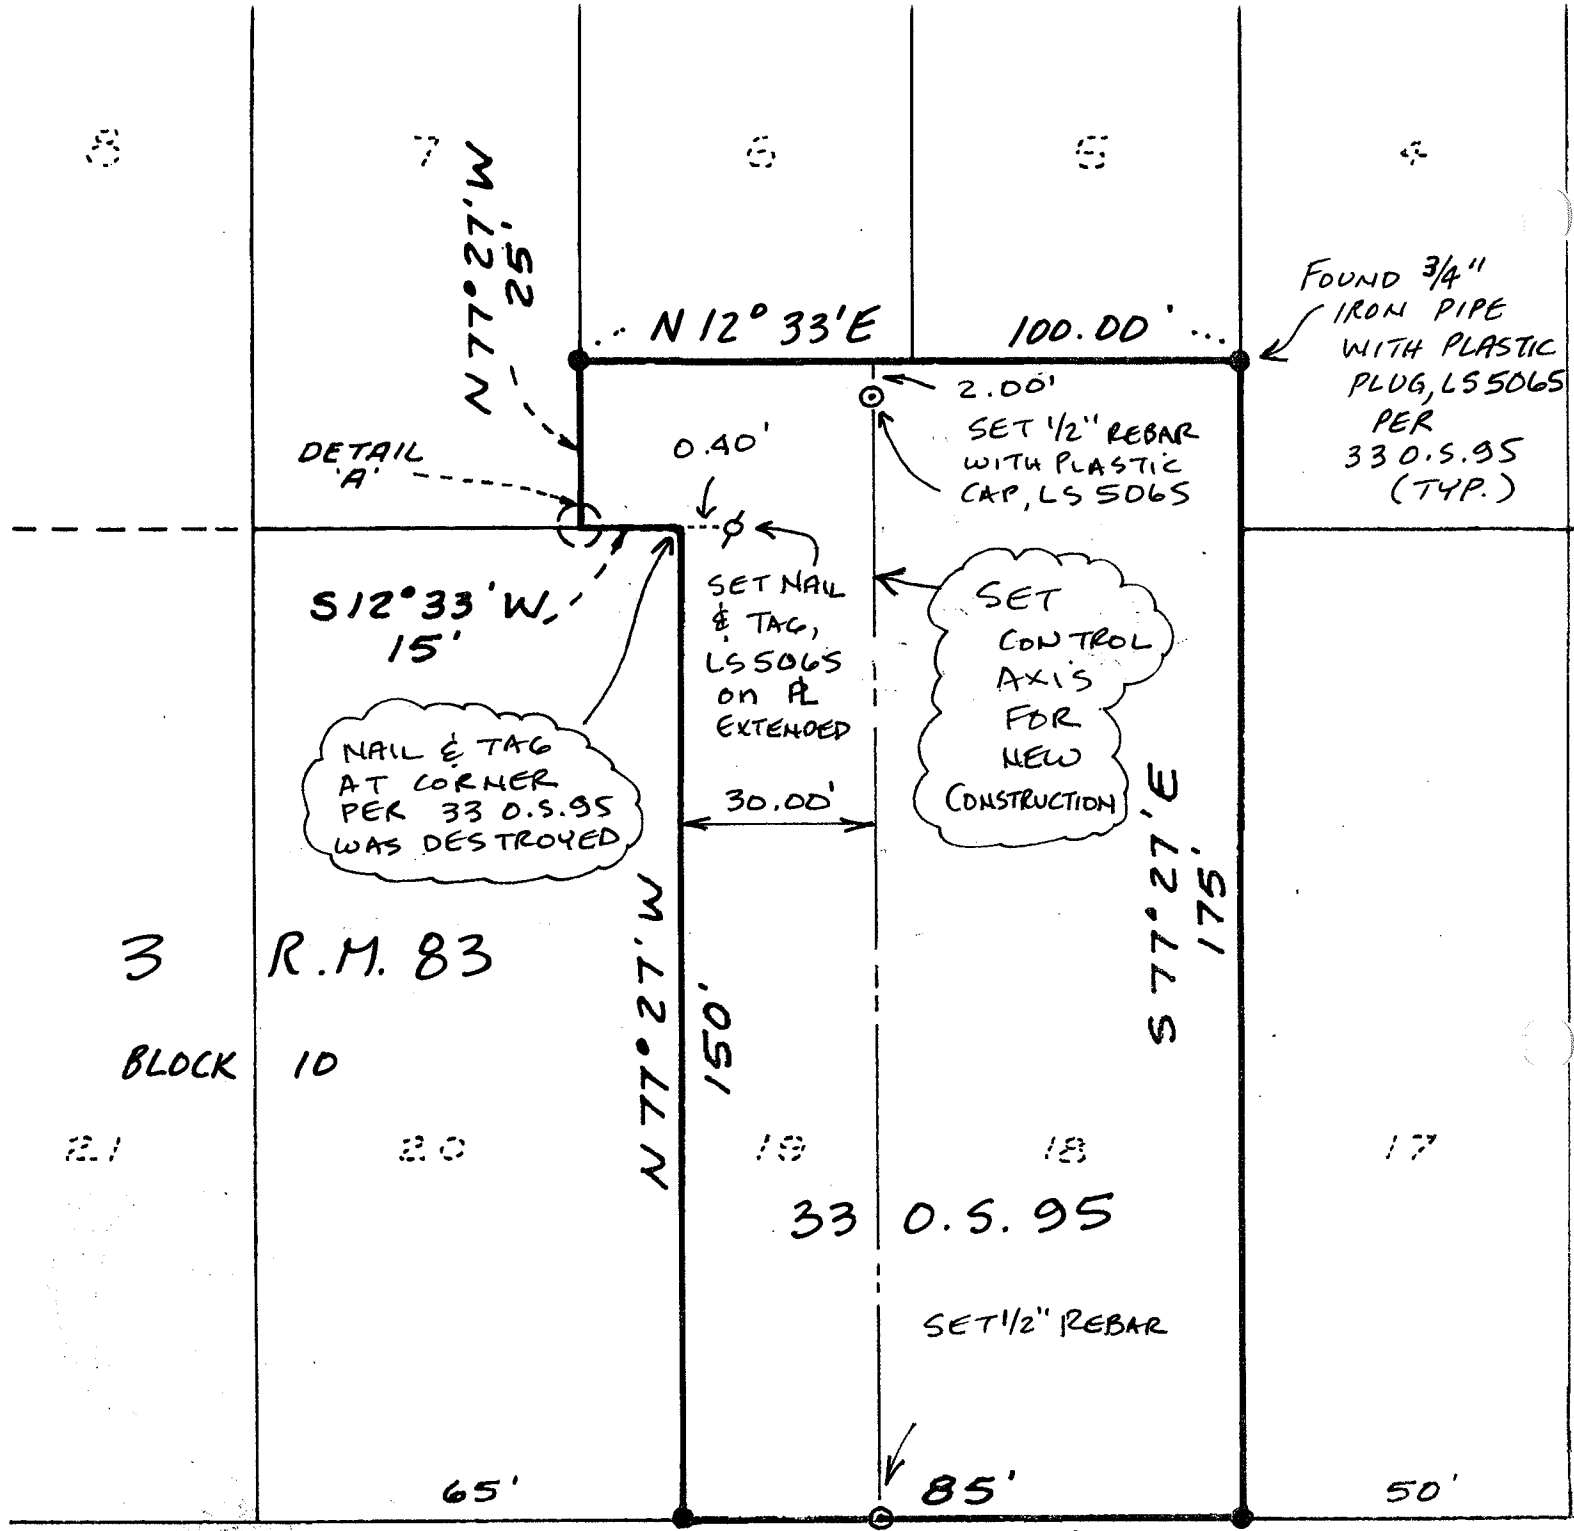 8
7
6
5
4
N77°27'W
25'
N 12° 33'E 100.00'
FOUND 3/4"
IRON PIPE
WITH PLASTIC
PLUG, LS 5065
PER
33 O.S.95
(TYP.)
2.00'
SET 1/2" REBAR
WITH PLASTIC
CAP, LS 5065
DETAIL
'A'
0.40'
S12°33'W,
15'
SET NAIL
& TAG,
LS 5065
on PL
EXTENDED
SET
CONTROL
AXIS
FOR
NEW
CONSTRUCTION
NAIL & TAG
AT CORNER
PER 33 O.S.95
WAS DESTROYED
30.00'
S 77°27'E
175'
N77°27'W
150'
3 R.M. 83
BLOCK 10
21
20
19
18
17
33 O.S. 95
SET 1/2" REBAR
65'
85'
50'